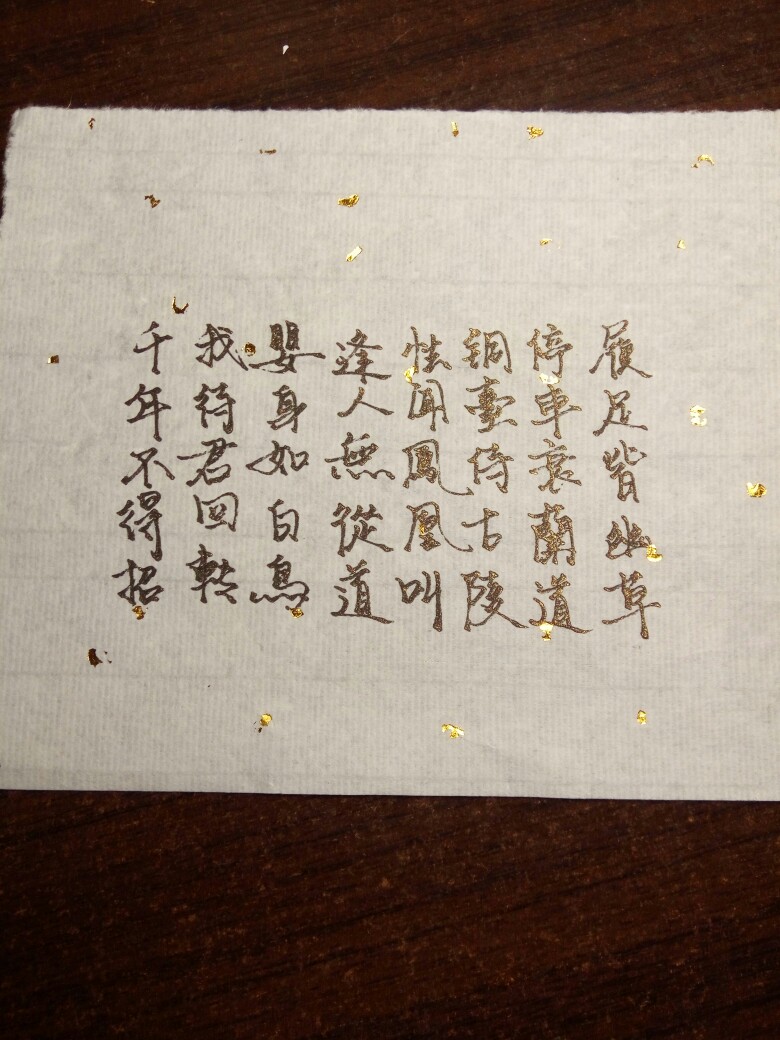 履足皆幽草
停车哀蘭道
铜臺倚古陵
怯闻鳳凰叫
逢人無從道
嬰身如白鳥
我待君回轉
千年不得招